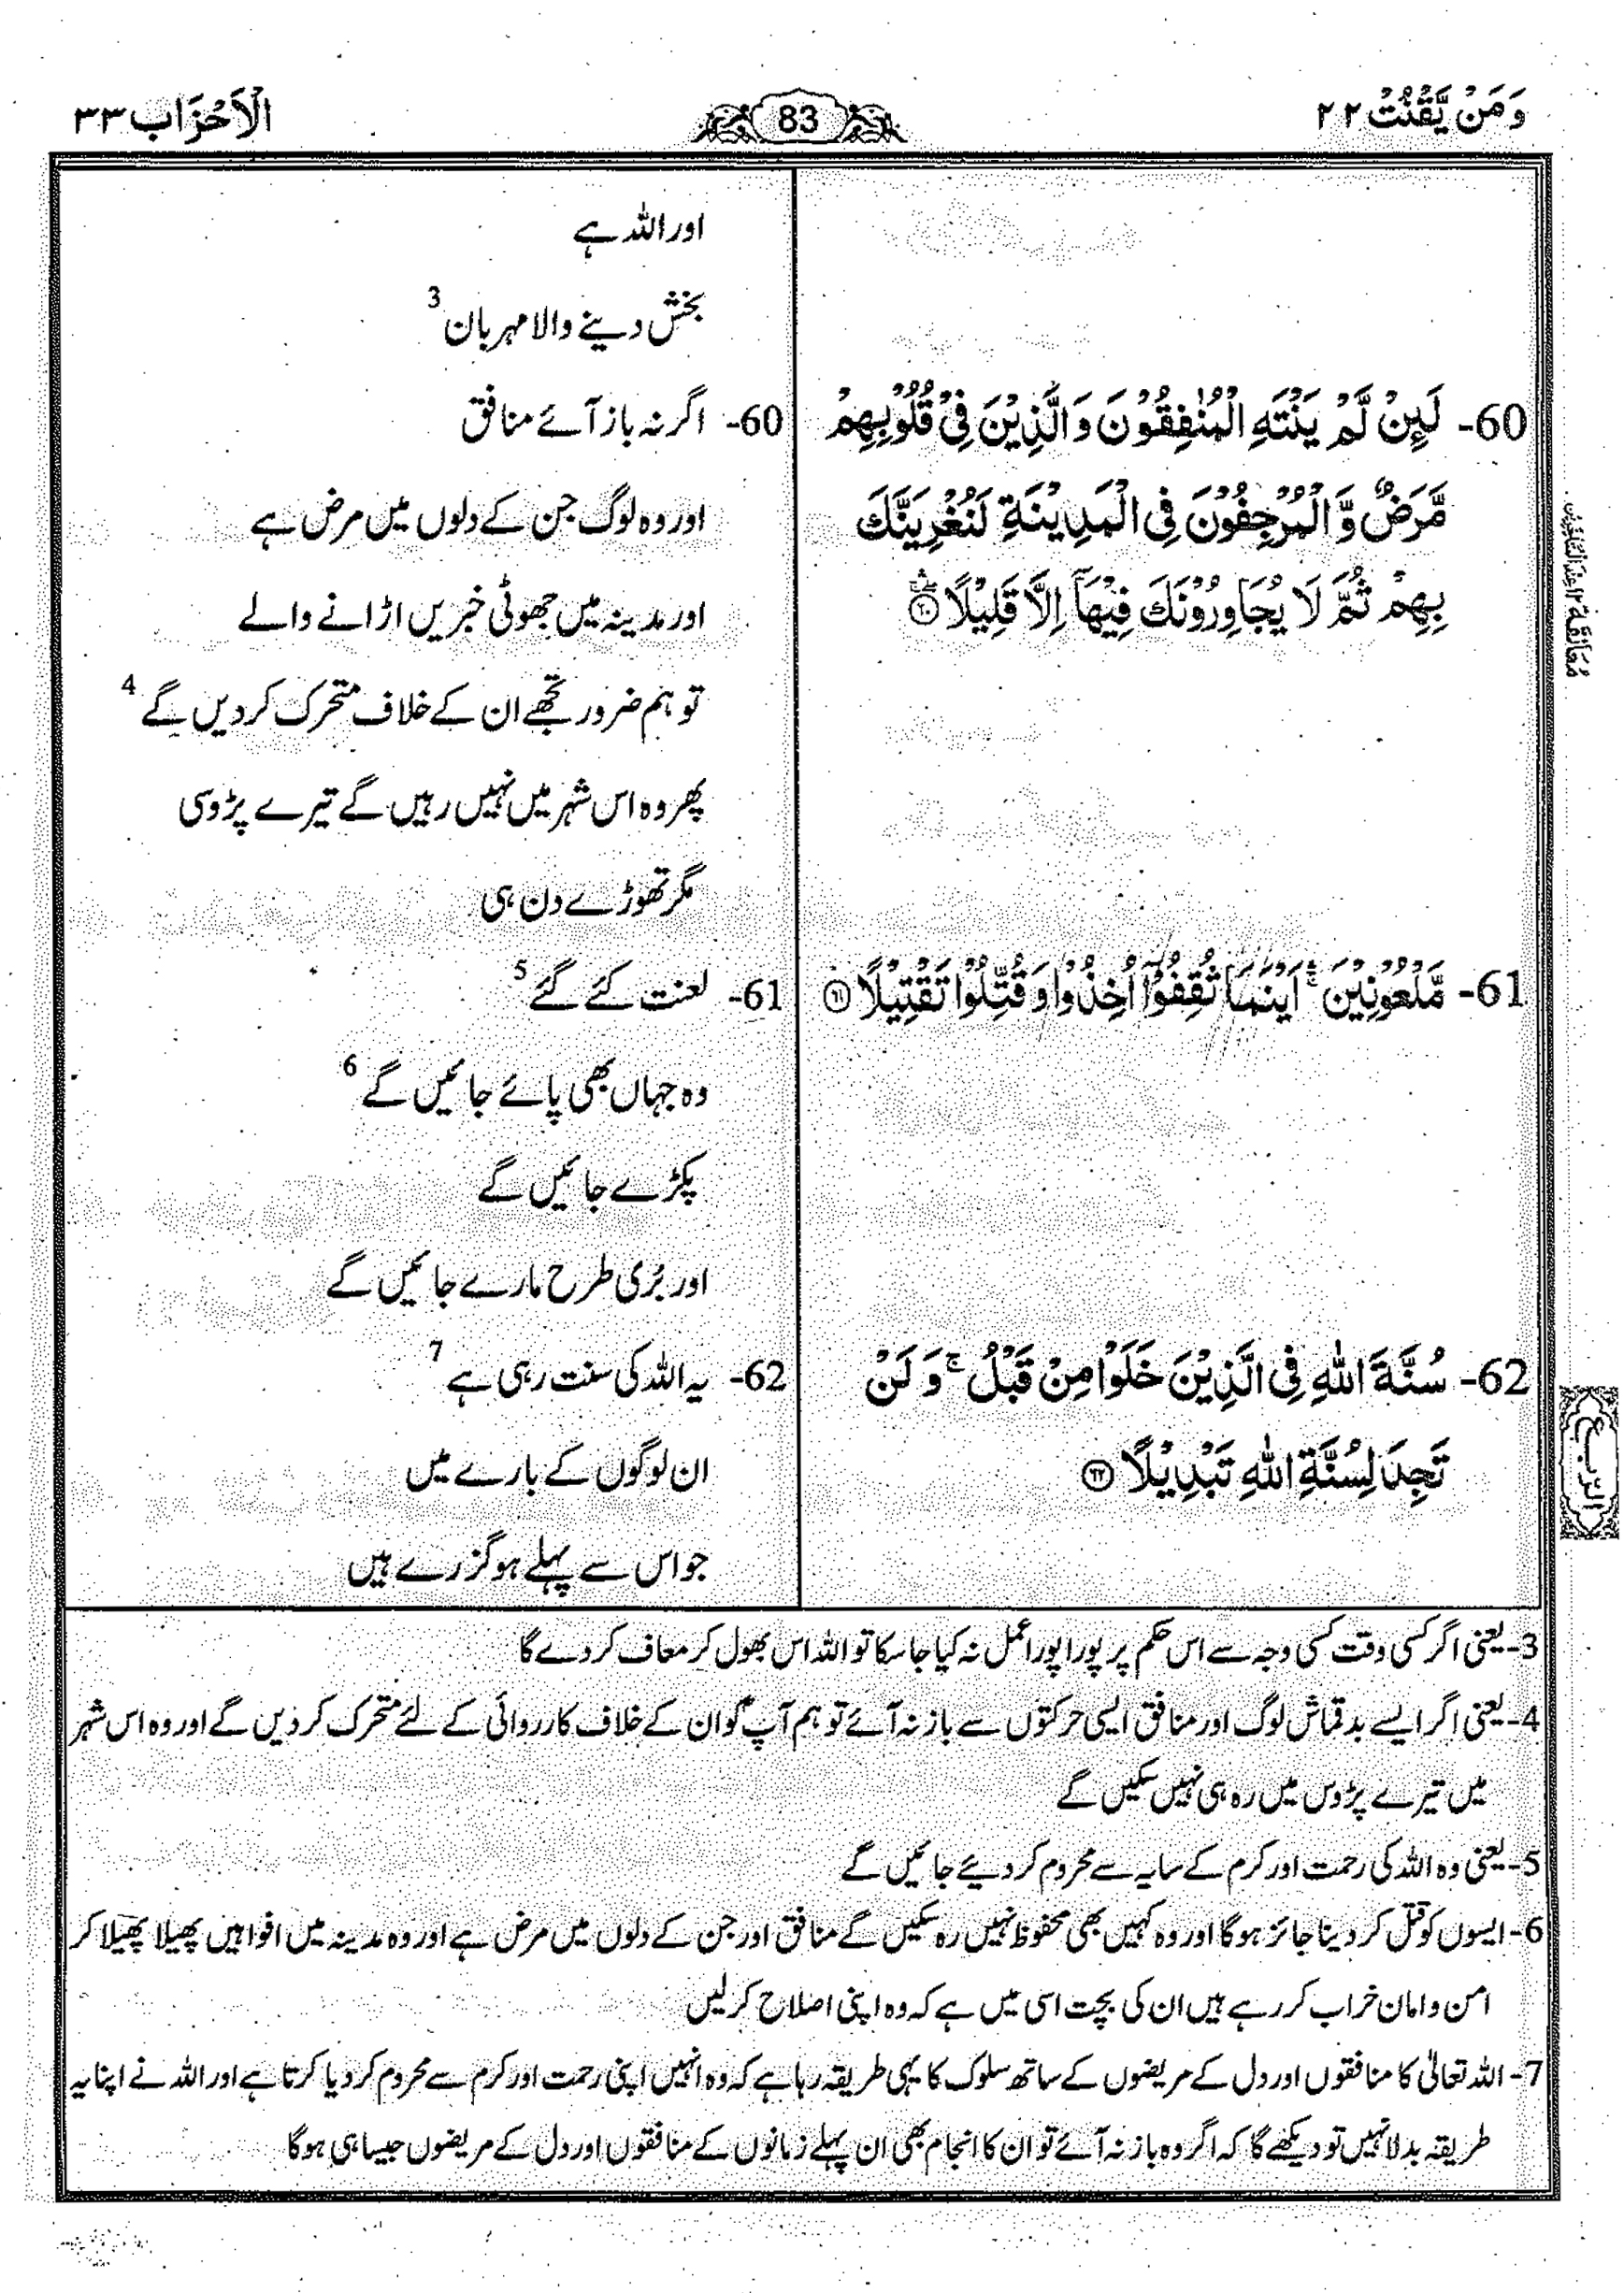 وَمَنْ يَّقْنُتْ ٢٢
83
اَلْاَحْزَاب ٣٣
60- لَىِٕنْ لَّمْ يَنْتَهِ الْمُنٰفِقُوْنَ وَالَّذِيْنَ فِيْ قُلُوْبِهِمْ
مَّرَضٌ وَّالْمُرْجِفُوْنَ فِي الْمَدِيْنَةِ لَنُغْرِيَنَّكَ
بِهِمْ ثُمَّ لَا يُجَاوِرُوْنَكَ فِيْهَآ اِلَّا قَلِيْلًا ۝٦٠
61- مَّلْعُوْنِيْنَ ۛۚ اَيْنَمَا ثُقِفُوْٓا اُخِذُوْا وَقُتِّلُوْا تَقْتِيْلًا ۝٦١
62- سُنَّةَ اللّٰهِ فِي الَّذِيْنَ خَلَوْا مِنْ قَبْلُ ۚ وَلَنْ
تَجِدَ لِسُنَّةِ اللّٰهِ تَبْدِيْلًا ۝٦٢
اور اللہ ہے
بخش دینے والا مہربان 3
60- اگر نہ باز آئے منافق
اور وہ لوگ جن کے دلوں میں مرض ہے
اور مدینہ میں جھوٹی خبریں اڑانے والے
تو ہم ضرور تجھے ان کے خلاف متحرک کردیں گے 4
پھر وہ اس شہر میں نہیں رہیں گے تیرے پڑوسی
مگر تھوڑے دن ہی
61- لعنت کئے گئے 5
وہ جہاں بھی پائے جائیں گے 6
پکڑے جائیں گے
اور بُری طرح مارے جائیں گے
62- یہ اللہ کی سنت رہی ہے 7
ان لوگوں کے بارے میں
جو اس سے پہلے ہو گزرے ہیں
3- یعنی اگر کسی وقت کسی وجہ سے اس حکم پر پورا پورا عمل نہ کیا جا سکا تو اللہ اس بھول کر معاف کر دے گا
4- یعنی اگر ایسے بدقماش لوگ اور منافق ایسی حرکتوں سے باز نہ آئے تو ہم آپؐ کو ان کے خلاف کارروائی کے لئے متحرک کردیں گے اور وہ اس شہر
میں تیرے پڑوس میں رہ ہی نہیں سکیں گے
5- یعنی وہ اللہ کی رحمت اور کرم کے سایہ سے محروم کر دیئے جائیں گے
6- ایسوں کو قتل کر دینا جائز ہوگا اور وہ کہیں بھی محفوظ نہیں رہ سکیں گے منافق اور جن کے دلوں میں مرض ہے اور وہ مدینہ میں افواہیں پھیلا پھیلا کر
امن و امان خراب کر رہے ہیں ان کی بچت اسی میں ہے کہ وہ اپنی اصلاح کرلیں
7- اللہ تعالیٰ کا منافقوں اور دل کے مریضوں کے ساتھ سلوک کا یہی طریقہ رہا ہے کہ وہ انہیں اپنی رحمت اور کرم سے محروم کر دیا کرتا ہے اور اللہ نے اپنا یہ
طریقہ بدلا نہیں تو دیکھے گا کہ اگر وہ باز نہ آئے تو ان کا انجام بھی ان پہلے زمانوں کے منافقوں اور دل کے مریضوں جیسا ہی ہوگا
الربع